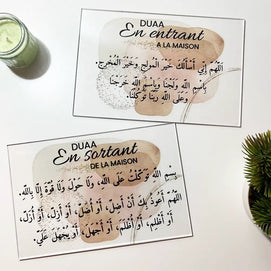 DUAA
En entrant
A LA MAISON
اللَّهُمَّ إِنِّي أَسْأَلُكَ خَيْرَ الْمَوْلِجِ وَخَيْرَ الْمَخْرَجِ،
بِاسْمِ اللَّهِ وَلَجْنَا وَبِاسْمِ اللَّهِ خَرَجْنَا
وَعَلَى اللَّهِ رَبِّنَا تَوَكَّلْنَا.
DUAA
En sortant
DE LA MAISON
بِسْمِ اللَّهِ تَوَكَّلْتُ عَلَى اللَّهِ، وَلَا حَوْلَ وَلَا قُوَّةَ إِلَّا بِاللَّهِ.
اللَّهُمَّ أَعُوذُ بِكَ أَنْ أَضِلَّ، أَوْ أُضَلَّ، أَوْ أَزِلَّ، أَوْ أُزَلَّ،
أَوْ أَظْلِمَ، أَوْ أُظْلَمَ، أَوْ أَجْهَلَ، أَوْ يُجْهَلَ عَلَيَّ.